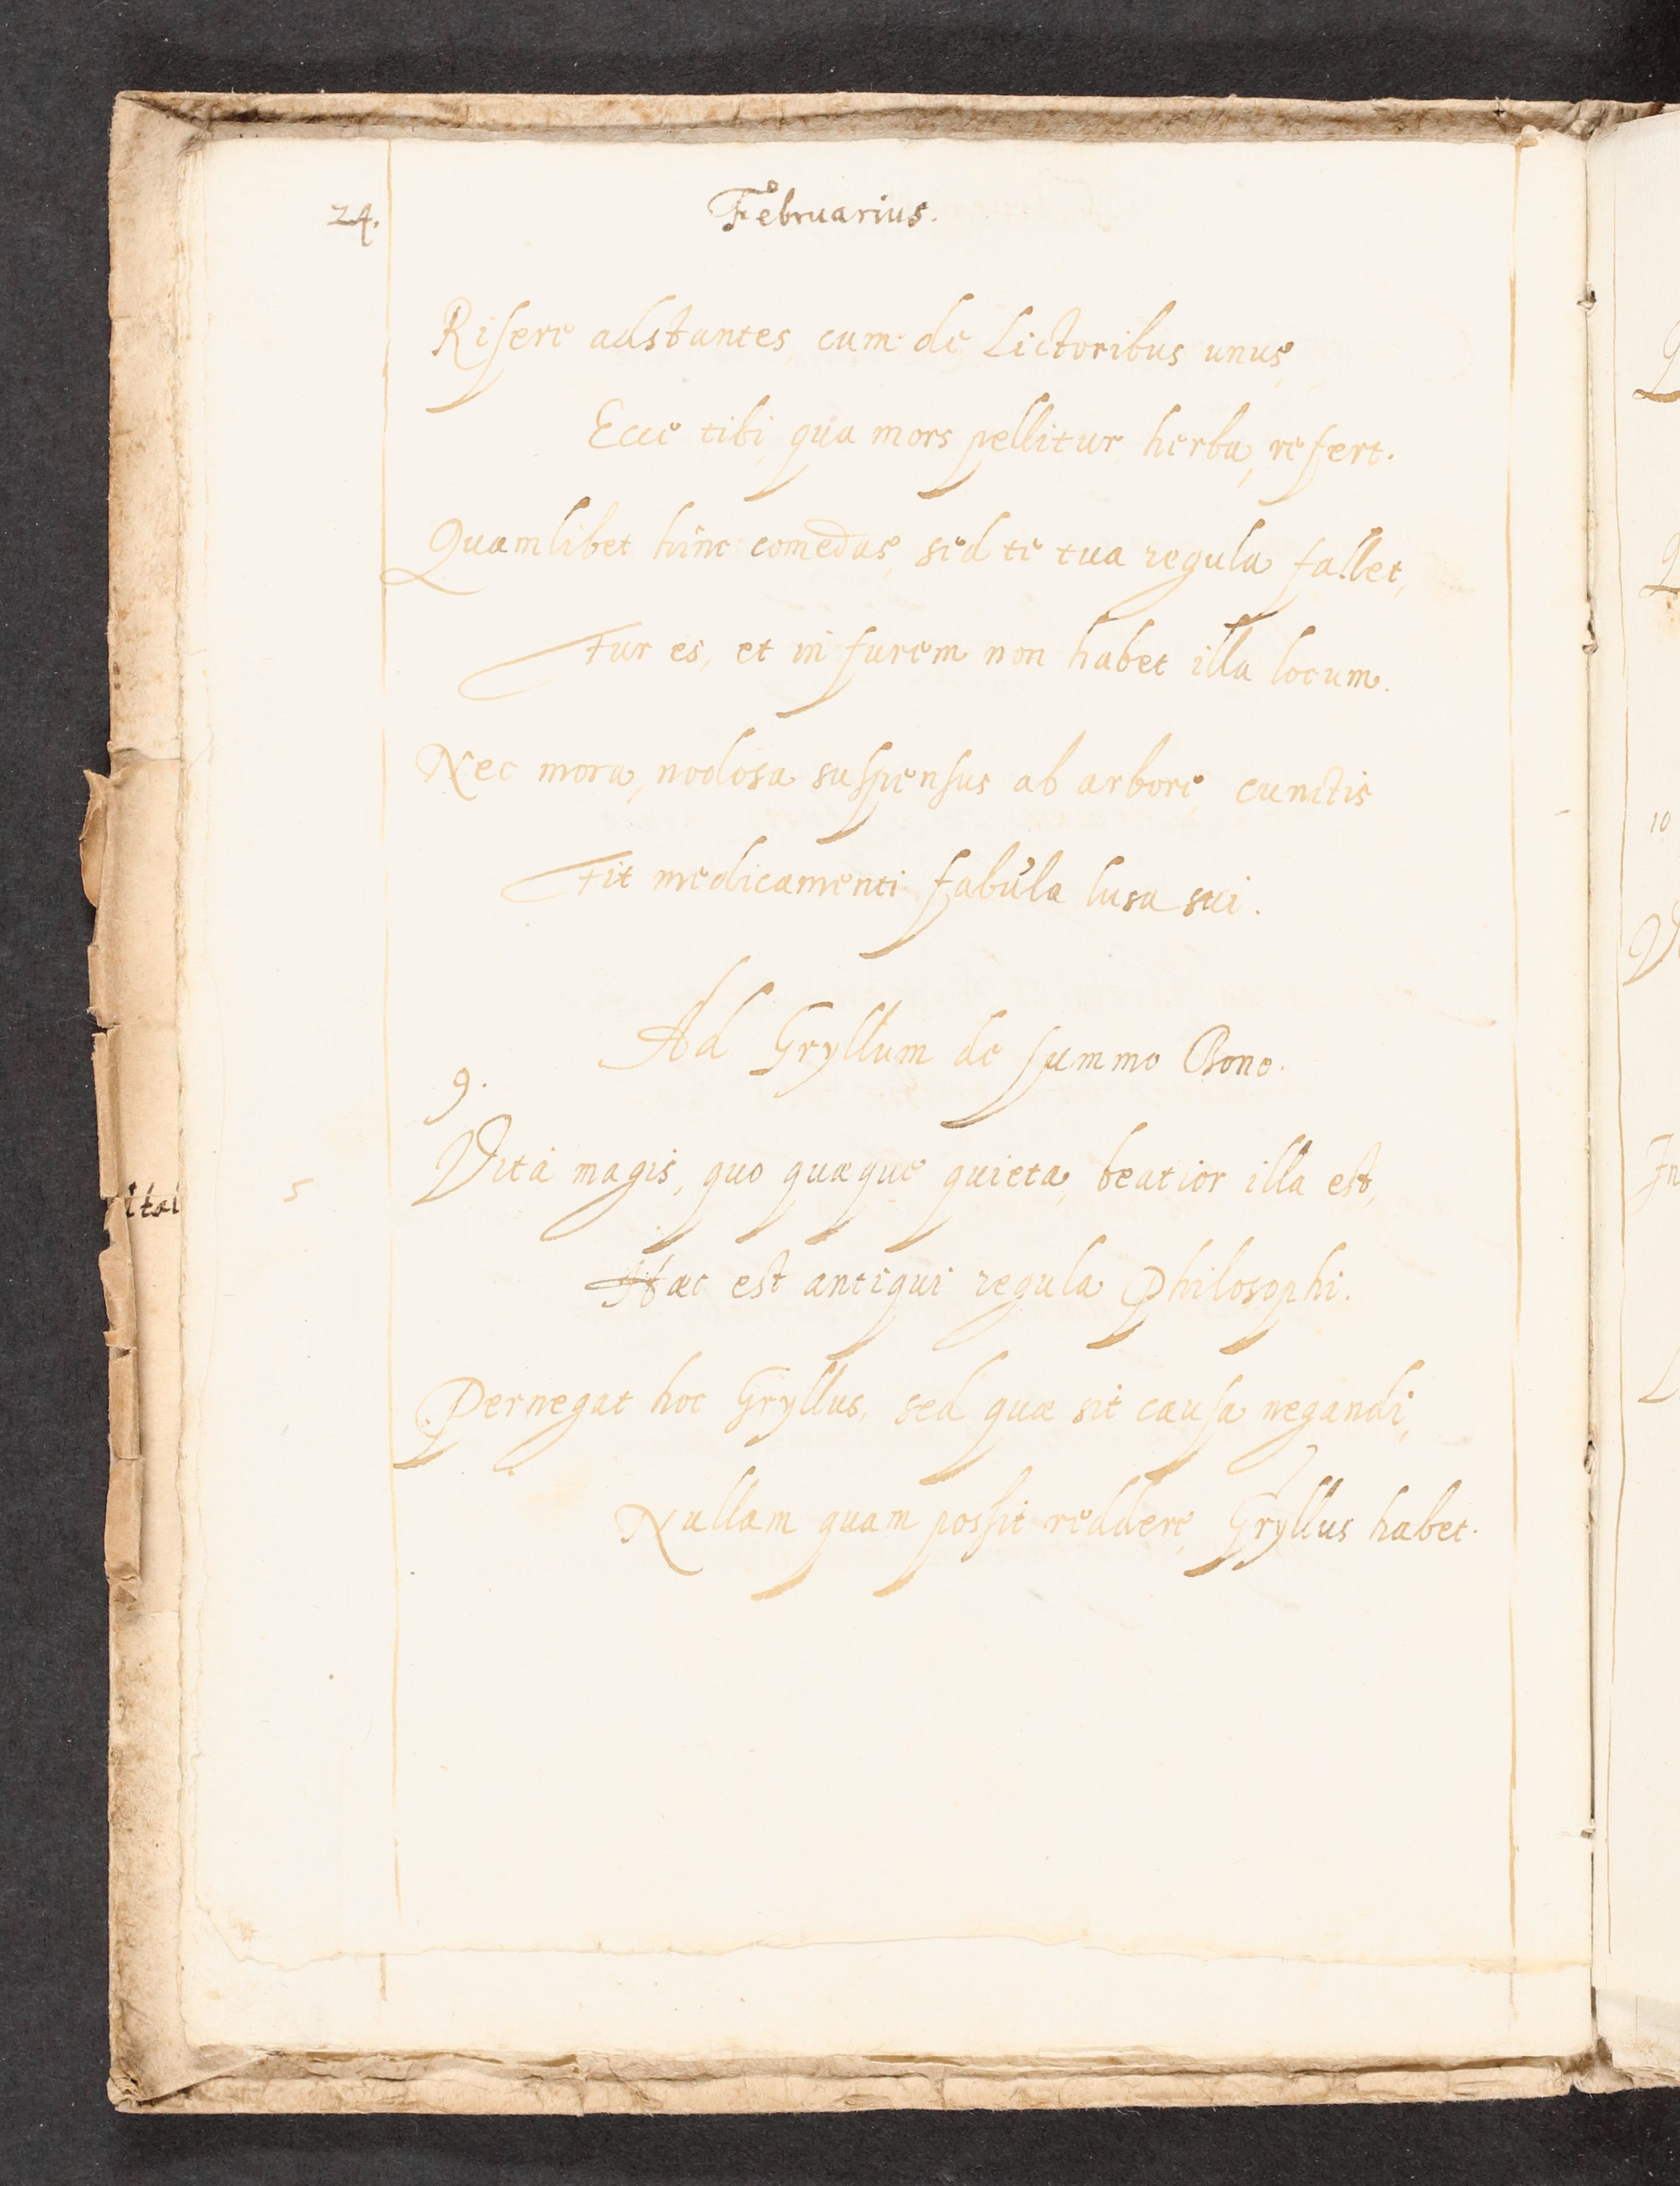 24.
Februarius.
Risere adstantes, cum de Lictoribus unus,
Ecce tibi, qua mors pellitur, herba, refert.
Quamlibet hinc comedas, sed te tua regula fallet,
Fur es, et in furem non habet illa locum.
Nec mora, nodosa suspensus ab arbore, cunctis
Fit medicamenti fabula lusa sui.
Ad Gryllum de summo Bono.
9.
5
Vita magis, quo quæque quieta, beatior illa est,
Hæc est antiqui regula Philosophi.
Pernegat hoc Gryllus, sed quæ sit causa negandi,
Nullam quam possit reddere, Gryllus habet.
10